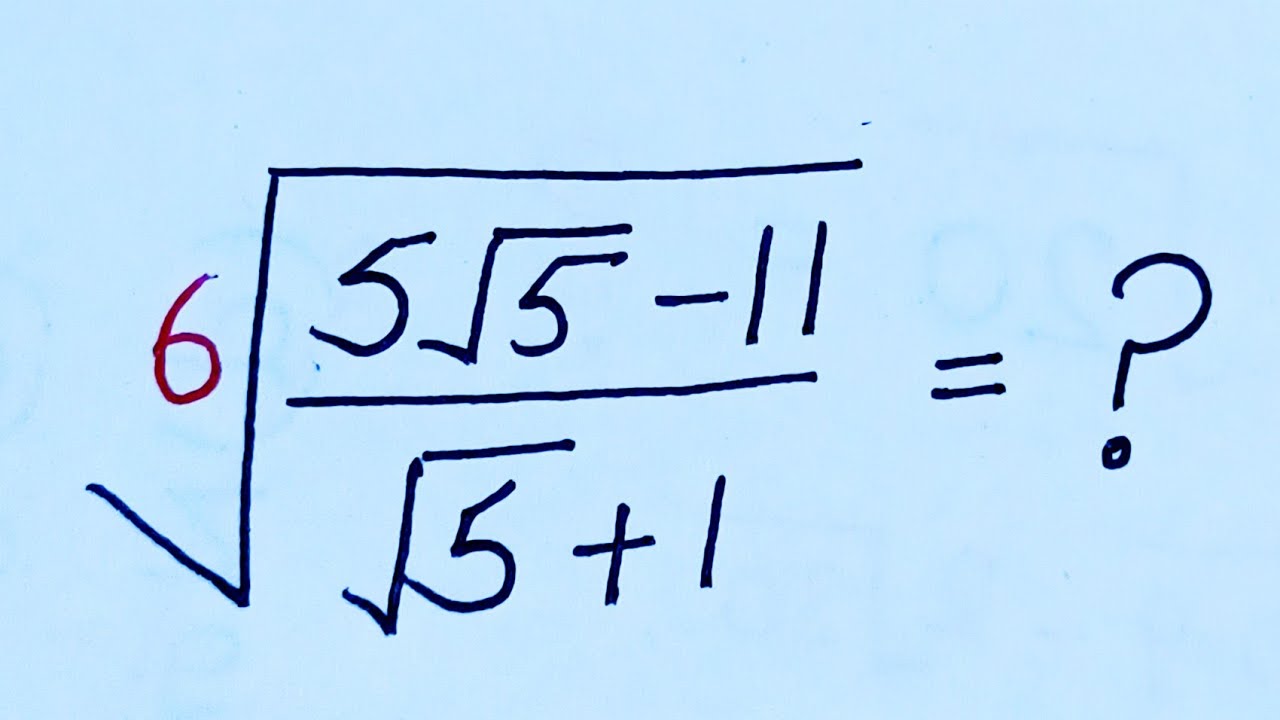 6√((5√5 - 11)/(√5 + 1)) = ?